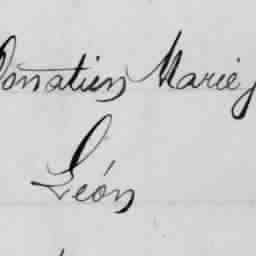 Donatien Marie
Léon